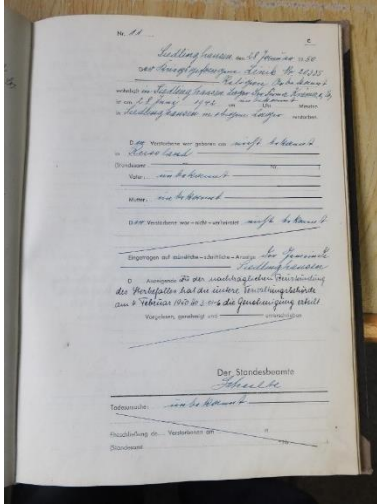 Nr. 11
C
Siedlinghausen, am 28. Januar 1950
Der Kriegsgefangene Nr. 20335
Religion unbekannt
wohnhaft in Siedlinghausen Lager
ist am 28. Juni 1942 um unbekannt Uhr Minuten
in Siedlinghausen in obigem Lager verstorben.
Der Verstorbene war geboren am nicht bekannt
in Russland
(Standesamt Nr. )
Vater: unbekannt
Mutter: unbekannt
Der Verstorbene war - nicht - verheiratet nicht bekannt
Eingetragen auf mündliche - schriftliche - Anzeige der Gemeinde
Siedlinghausen
D Anzeigende Zu der nachträglichen Beurkundung
des Sterbefalles hat die untere Verwaltungsbehörde
am 2. Februar 1950 die Genehmigung erteilt
Vorgelesen, genehmigt und unterschrieben
Der Standesbeamte
Todesursache: unbekannt
Eheschließung de Verstorbenen am in
(Standesamt